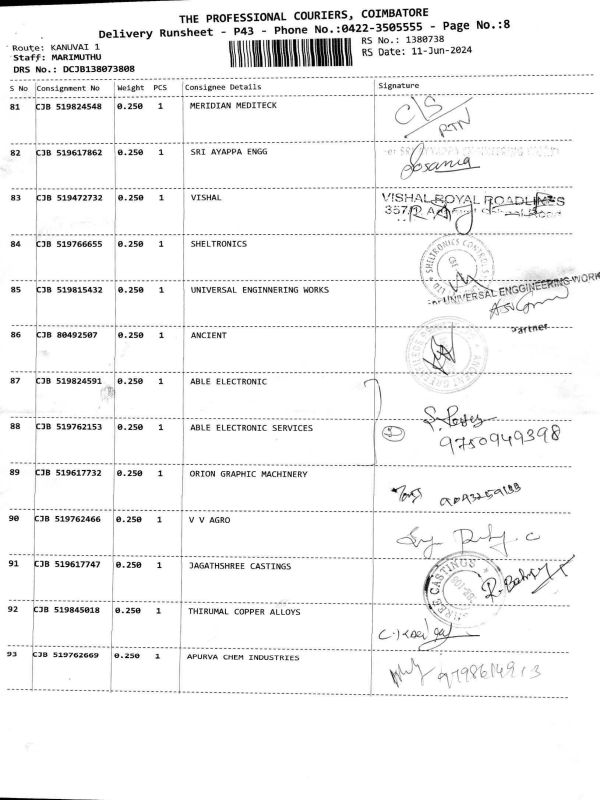 THE PROFESSIONAL COURIERS, COIMBATORE
Delivery Runsheet - P43 - Phone No.:0422-3505555 - Page No.:8
Route: KANUVAI 1
RS No.: 1380738
Staff: MARIMUTHU
RS Date: 11-Jun-2024
DRS No.: DCJB138073808
S No Consignment No Weight PCS Consignee Details Signature
81 CJB 519824548 0.250 1 MERIDIAN MEDITECK
C/S
RTN
82 CJB 519617862 0.250 1 SRI AYAPPA ENGG
83 CJB 519472732 0.250 1 VISHAL
VISHAL ROYAL ROADLINES
84 CJB 519766655 0.250 1 SHELTRONICS
SHELTRONICS CONTROLS
85 CJB 519815432 0.250 1 UNIVERSAL ENGINNERING WORKS
For UNIVERSAL ENGGINEERING WORK
Partner
86 CJB 80492507 0.250 1 ANCIENT
87 CJB 519824591 0.250 1 ABLE ELECTRONIC
88 CJB 519762153 0.250 1 ABLE ELECTRONIC SERVICES
9750949398
89 CJB 519617732 0.250 1 ORION GRAPHIC MACHINERY
90 CJB 519762466 0.250 1 V V AGRO
91 CJB 519617747 0.250 1 JAGATHSHREE CASTINGS
SHREE CASTINGS
92 CJB 519845018 0.250 1 THIRUMAL COPPER ALLOYS
93 CJB 519762669 0.250 1 APURVA CHEM INDUSTRIES